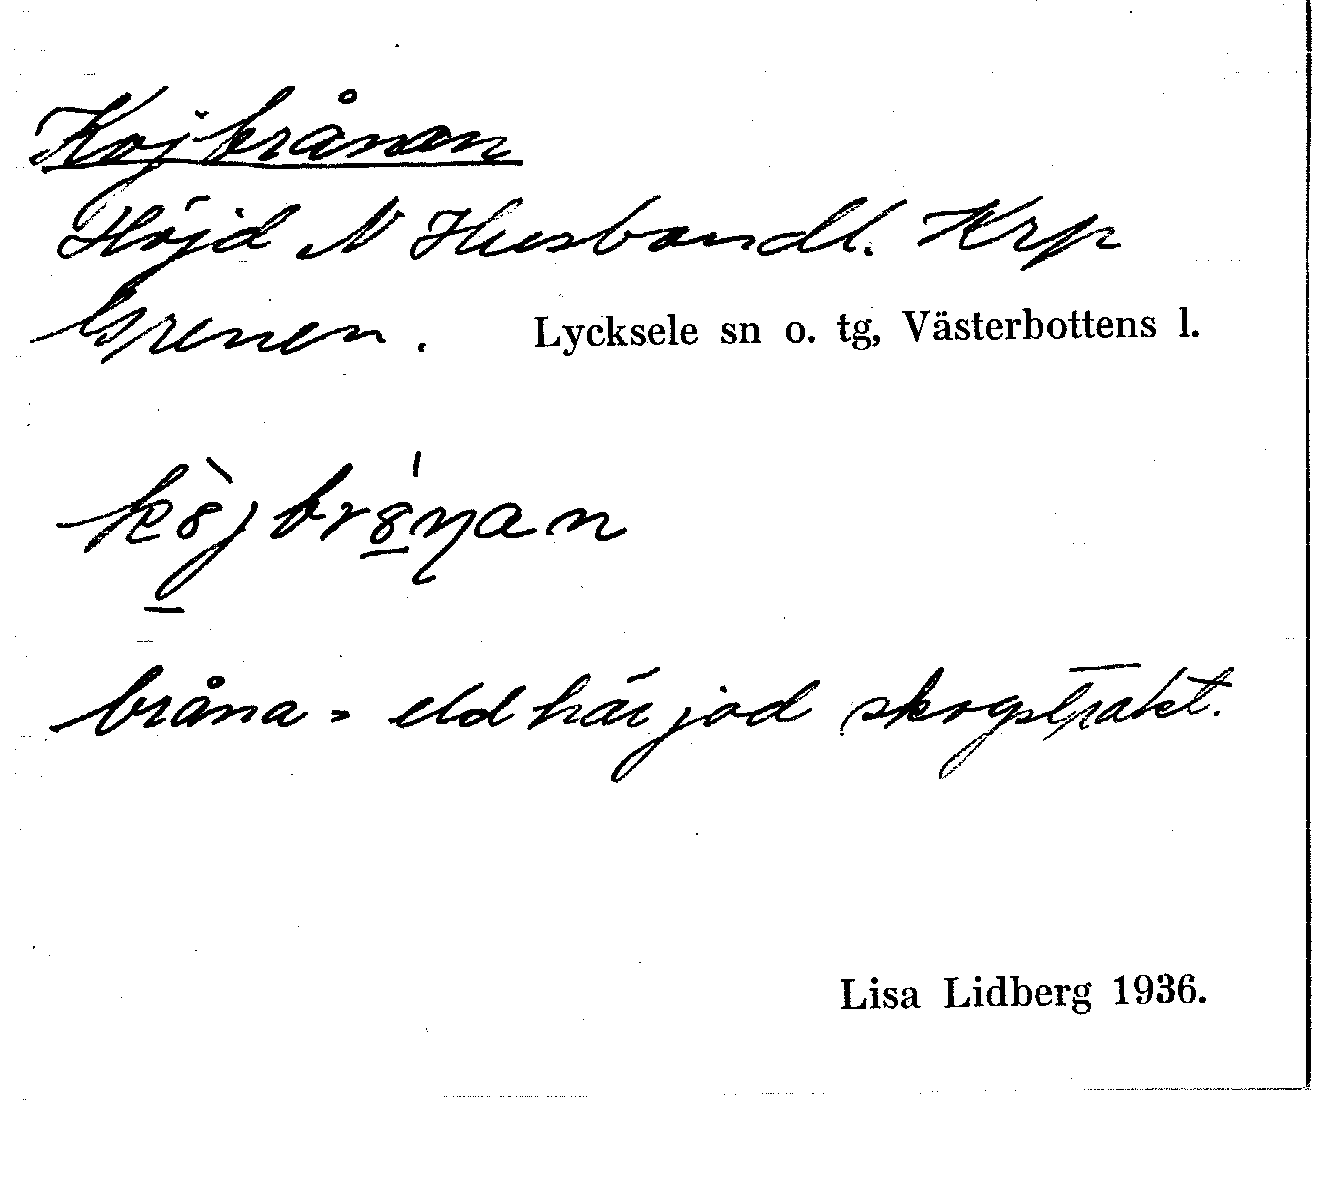 Kojbrånan
Höjd N Husbondl. Krp
Grenen. Lycksele sn o. tg, Västerbottens l.
bråna = eldhärjad skogstrakt.
Lisa Lidberg 1936.